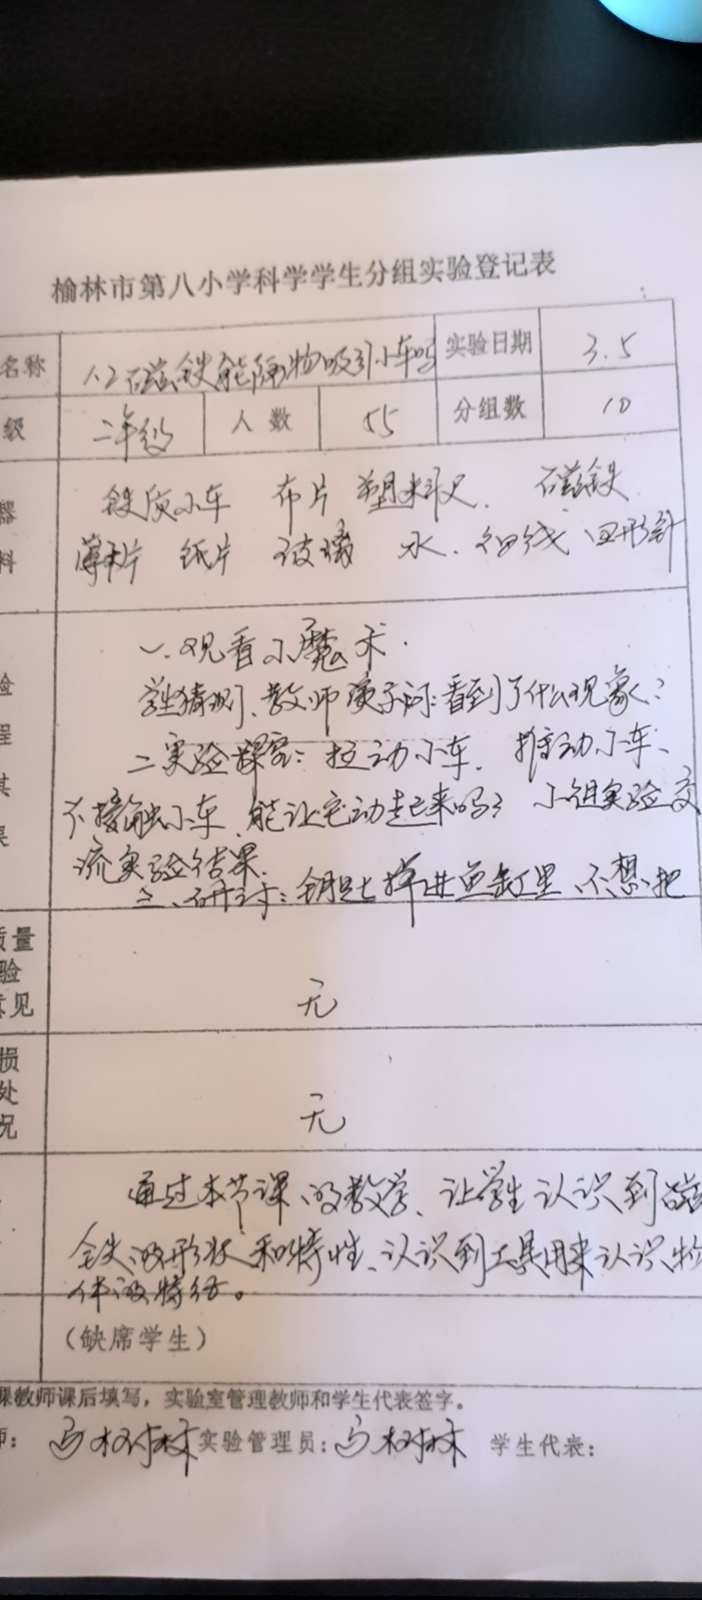 榆林市第八小学科学学生分组实验登记表
名称 1、2磁铁能隔物吸引小车吗 实验日期 3.5
级 二年级 人数 55 分组数 10
器 铁质小车 布片 塑料尺. 磁铁
料 薄木片 纸片 玻璃 水. 细线 回形针
一.观看小魔术.
验 学生猜测、教师演示问:看到了什么现象?
程 二实验探究:拉动小车. 推动小车、
其 不接触小车,能让它动起来吗? 小组实验交
果 流实验结果.
三、研讨:钥匙掉进鱼缸里、不想把
质量
验
意见 无
损
处
况 无
通过本节课的教学、让学生认识到磁
铁的形状和特性、认识到工具用来认识物
体的特征。
(缺席学生)
课教师课后填写,实验室管理教师和学生代表签字。
师: 马树林 实验管理员: 马树林 学生代表: